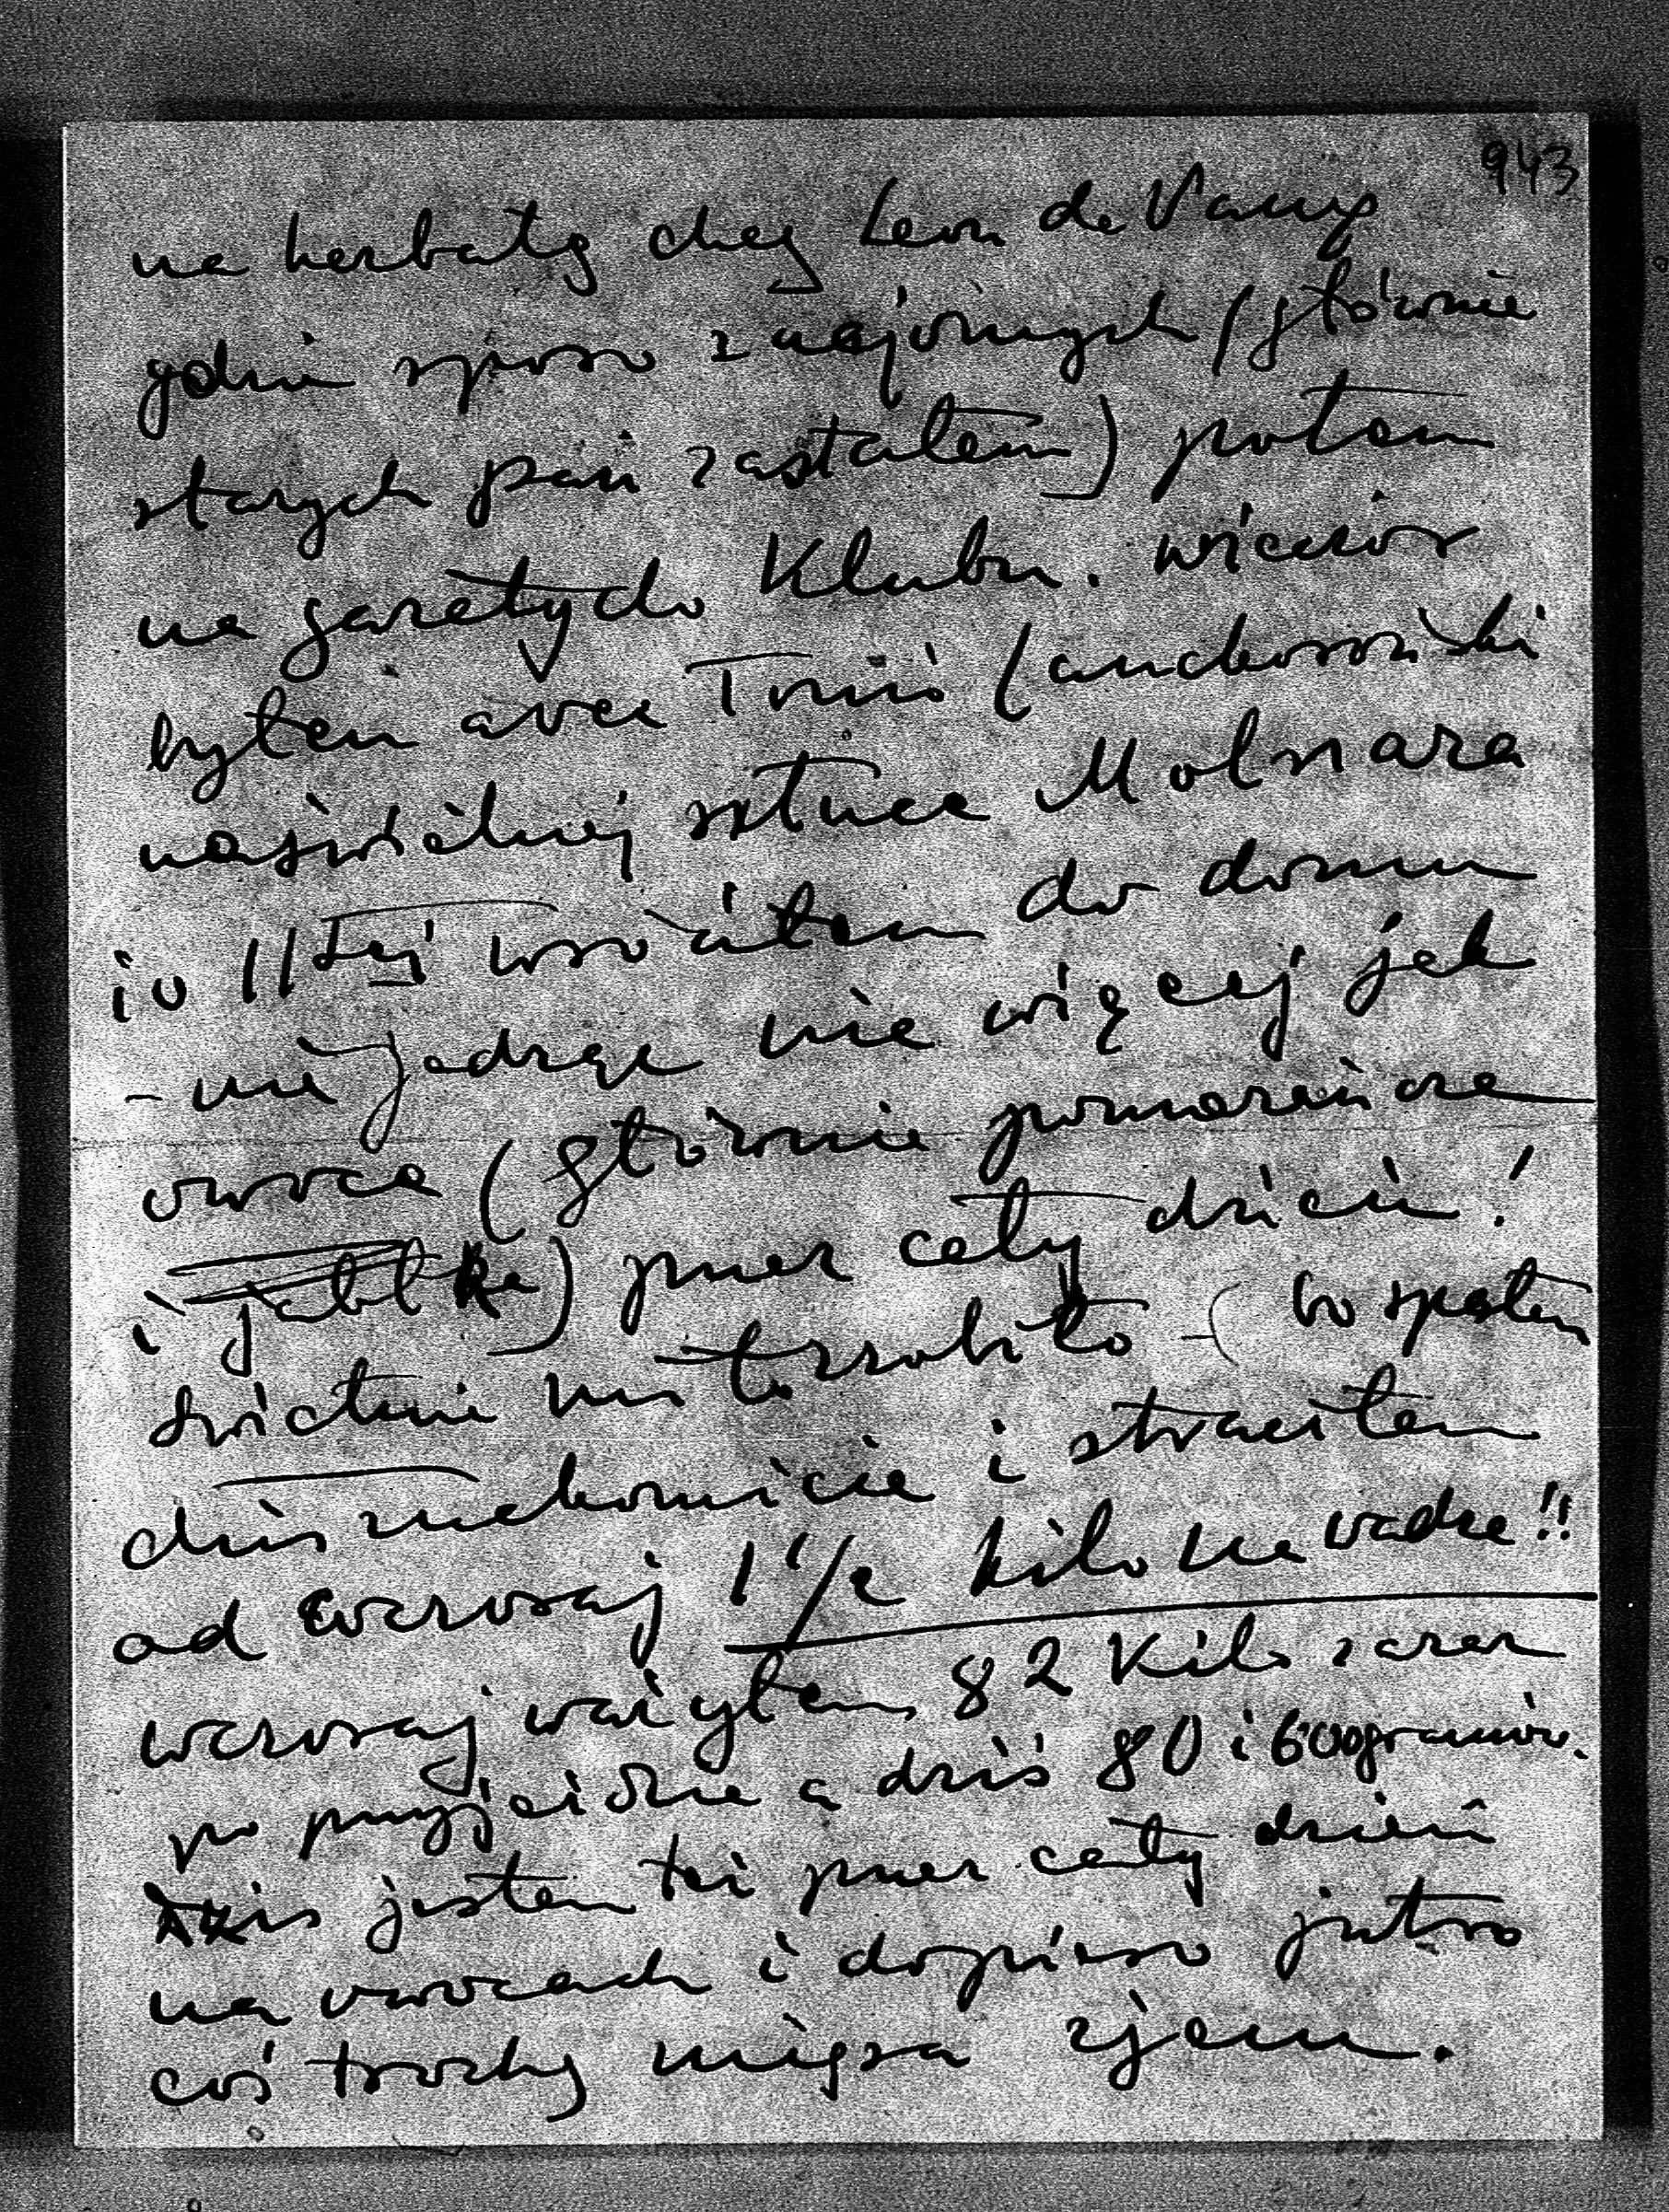 943
na herbatę chez Leon de Vaux
gdzie sporo znajomych (głównie
starych pań zastałem) potem
na gazety do Klubu. wieczór
byłem avec Toniś (anderosoński
na świetnej sztuce Molnara
i o 11tej wróciłem do domu
– nie jedząc nic więcej jak
owoce (głównie pomarańcze
i jabłka) przez cały dzień!
świetnie mi to zrobiło – bo spałem
dziś znakomicie i straciłem
od wczoraj 1 1/2 kilo na wadze!!
wczoraj ważyłem 82 Kilo zaraz
po przyjeździe a dziś 80 i 600 gramów.
Dziś jestem też przez cały dzień
na owocach i dopiero jutro
coś trochę mięsa zjem.